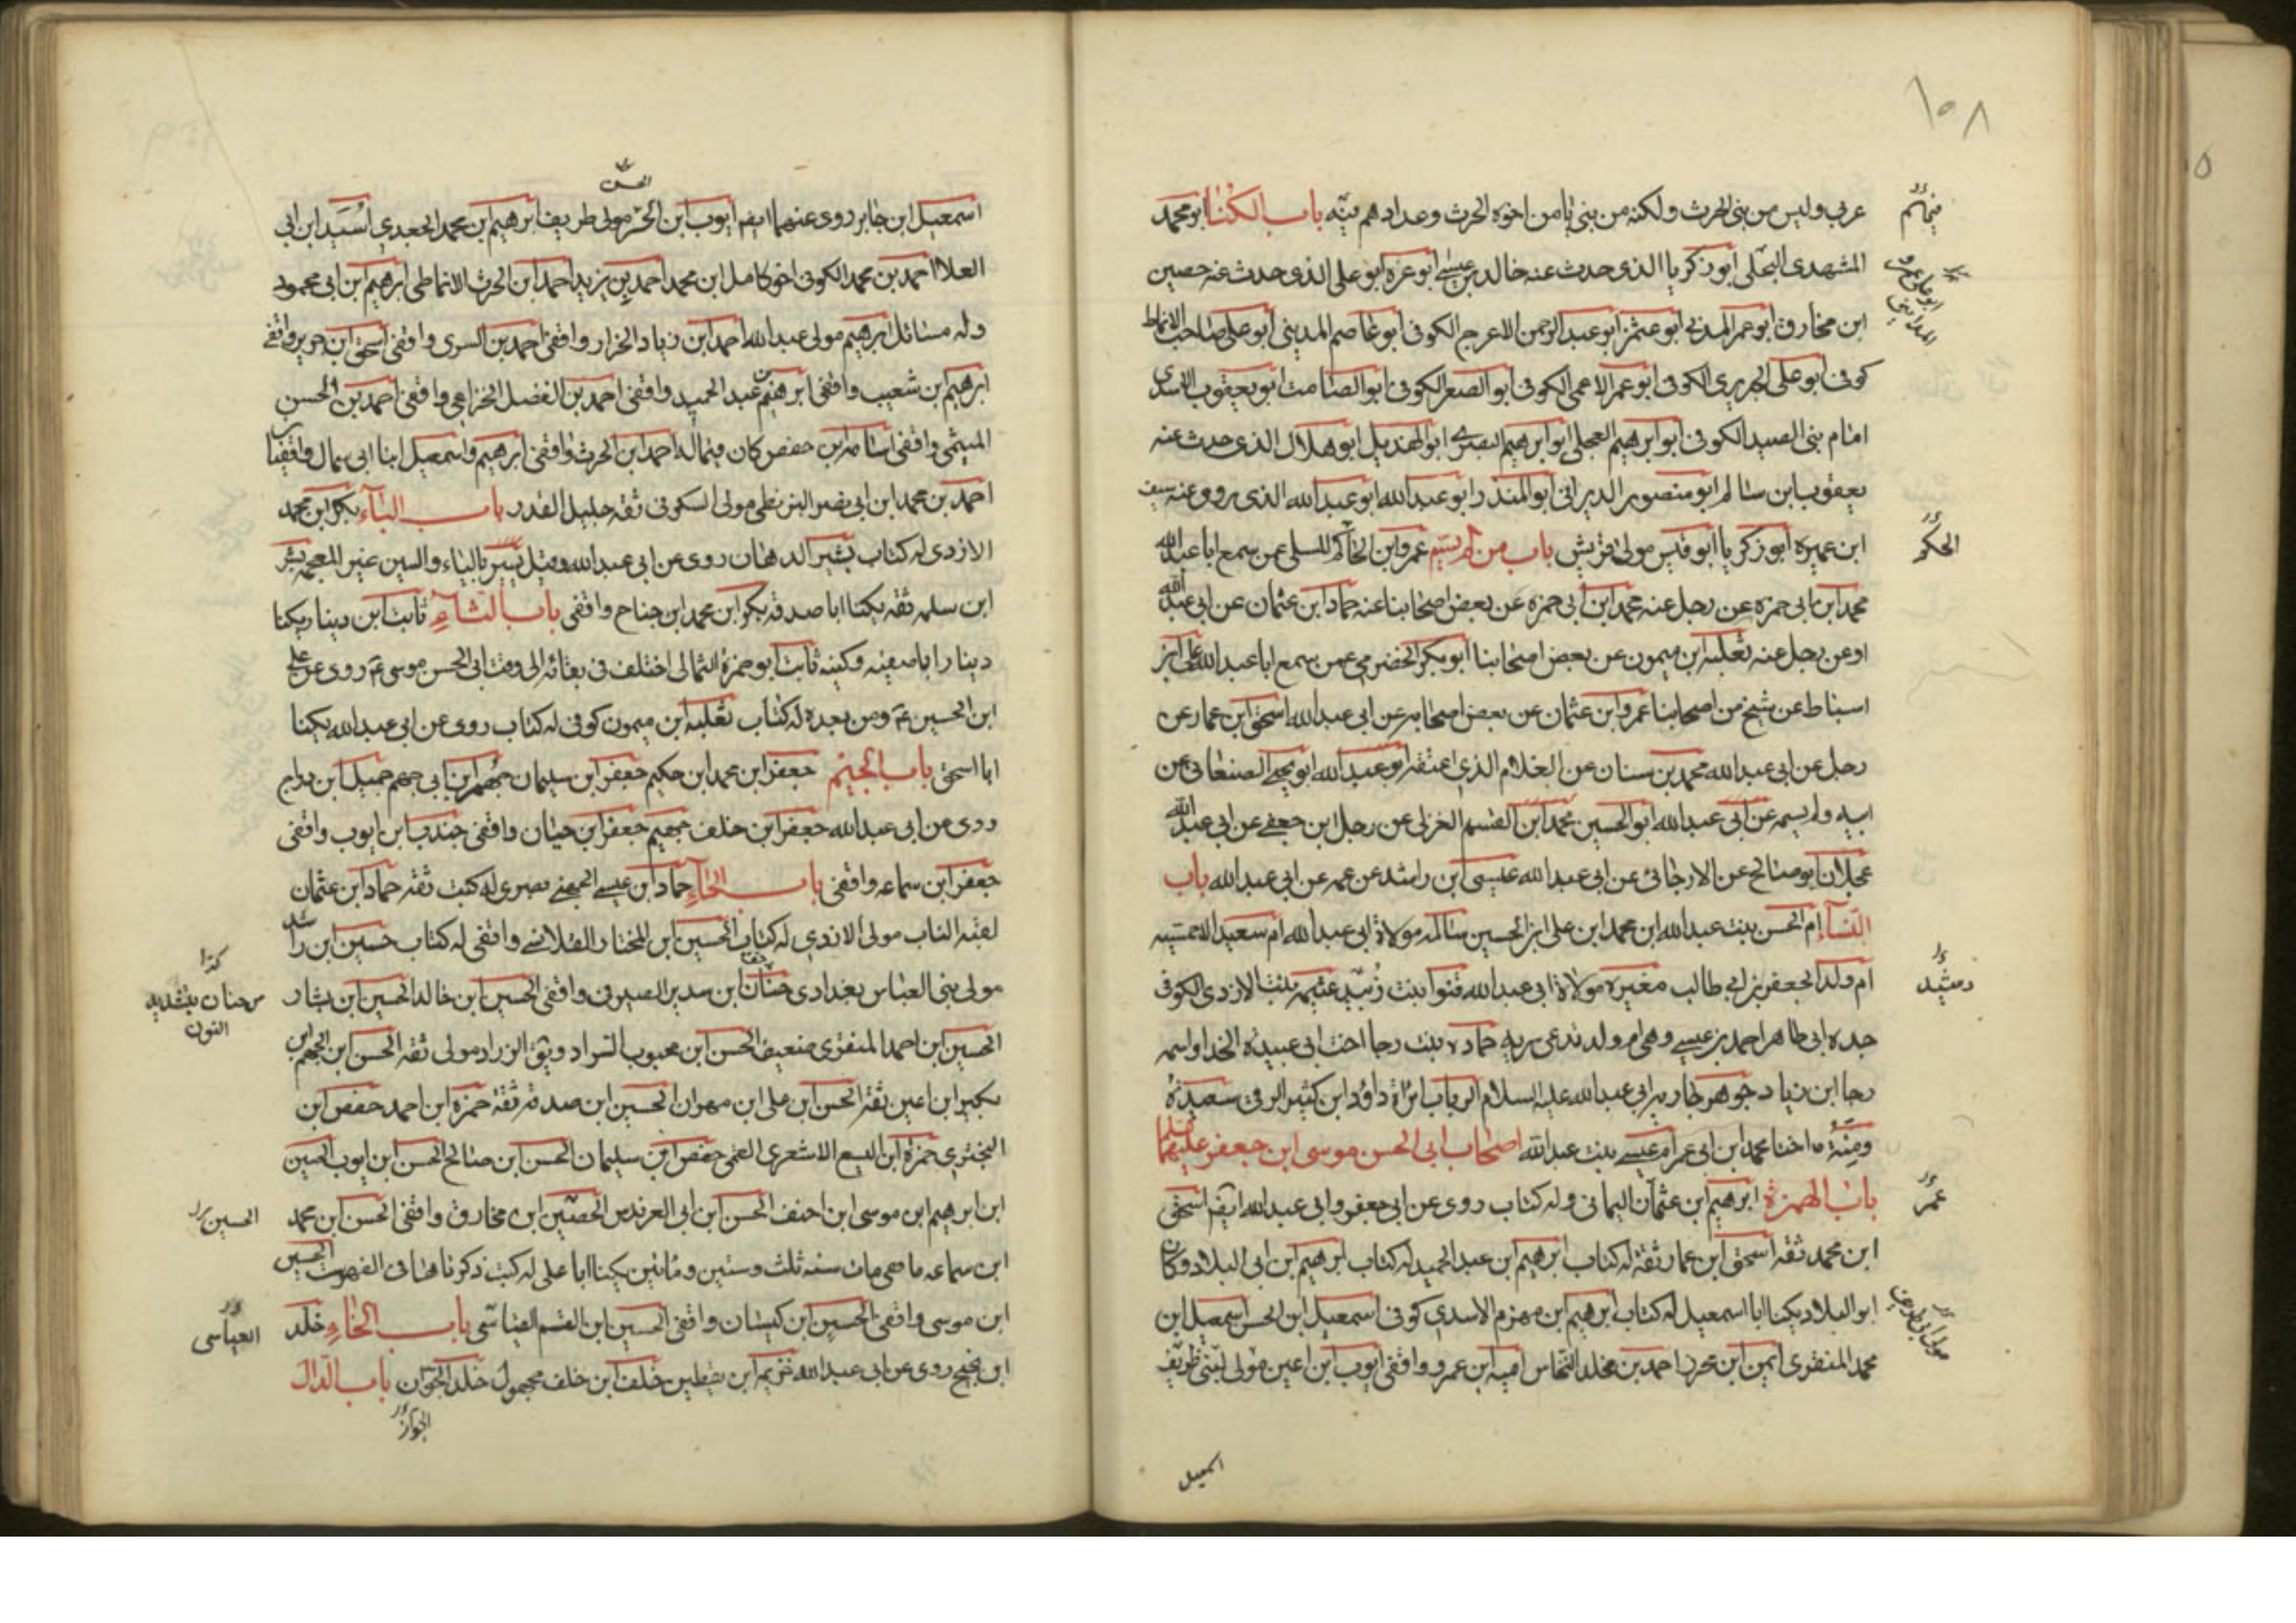 ١٥٨
عربي وليس من بني الحرث ولكنه من بني يامن اخوة الحرث وعدادهم فيه باب الكنا ابو محمد
المشهدى البجلى ابو زكريا الذى حدث عنه خالد بن عيسى ابو عزه ابو على الذى حدث عنه حصين
ابن مخارق ابو عمر المدنى ابو عثمن ابو عبد الرحمن الاعرج الكوفى ابو عاصم المدينى ابو على صاحب الانماط
كوفى ابو على الجريرى الكوفى ابو عمر الاعمى الكوفى ابو الصعر الكوفى ابو الصامت ابو يعقوب الاسدى
امام بنى الصيد الكوفى ابو ابرهيم العجلى ابو ابرهيم البصرى ابو الهذيل ابو هلال الذى حدث عنه
يعقوب ابن سالم ابو منصور ابو المنذر ابو عبد الله ابو عبد الله الذى روى عنه سيف
ابن عميره ابو زكريا ابو قيس مولى قريش باب من لم يسم عمرو ابن عمن سمع ابا عبد الله
محمد ابن ابى حمزه عن رجل عنه محمد ابن ابى حمزه عن بعض اصحابنا عنه حماد ابن عثمان عن ابى عبد الله
او عن رجل عنه ثعلبه ابن ميمون عن بعض اصحابنا ابو بكر الحضرمى عمن سمع ابا عبد الله على ابن
اسباط عن شيخ من اصحابنا عمرو ابن عثمان عن بعض اصحابه عن ابى عبد الله اسحق ابن عمار عن
رجل عن ابى عبد الله محمد بن سنان عن الغلام الذى اعتقه ابو عبد الله ابو يحيى الصنعانى عن
ابيه ولم يسمه عن ابى عبد الله ابو الحسين محمد ابن القسم عن رجل ابن جعفى عن ابى عبد الله
عجلان ابو صالح عن الارجانى عن ابى عبد الله عيسى ابن راشد عن عمه عن ابى عبد الله باب
النسآء ام الحسن بنت عبد الله ابن محمد ابن على ابن الحسين سالمه مولاة ابى عبد الله ام سعيد الاحمسيه
ام ولد لجعفر بن ابى طالب مغيره مولاة ابى عبد الله بنت بنت الازدى الكوفى
جده ابى طاهر احمد بن عيسى وهى ام ولد تدعى بريه حماده بنت رجا اخت ابى عبيده الحذا واسمه
رجا ابن زياد جوهر جاريه ابى عبد الله عليه السلام الرباب امراة داود ابن كثير الرقى سعيده
ومنه اختا محمد ابن ابى عمر ام عيسى بنت عبد الله اصحاب ابى الحسن موسى ابن جعفر عليهما
باب الهمزة ابرهيم ابن عثمان اليمانى وله كتاب روى عن ابى جعفر وابى عبد الله ايضا اسحق
ابن محمد ثقه اسحق ابن عمار ثقة له كتاب ابرهيم ابن عبد الحميد له كتاب ابرهيم ابن ابى البلاد وكان
ابو البلاد يكنا ابا اسمعيل له كتاب ابرهيم ابن مهزم الاسدى كوفى اسمعيل ابن الحسن اسمعيل ابن
محمد المنقرى ايمن ابن محرز احمد بن مخلد النخاس اميه ابن عمرو واقفى ايوب ابن اعين مولى لبنى طريف
رشيد
عمر
اسمعيل
اسمعيل ابن جابر روى عنهما ايضا ايوب ابن الحر مولى طريف ابرهيم بن محمد الجعدى اسيد ابن ابى
العلا احمد بن محمد الكوفى اخو كامل ابن محمد احمد بن يزيد احمد ابن الحرث الانماطى ابرهيم ابن ابى محمود
وله مسائل ابرهيم مولى عبد الله احمد ابن زياد الخزار واقفى احمد بن السرى واقفى اسحق ابن جرير واقفى
ابرهيم ابن شعيب واقفى ابرهيم بن عبد الحميد واقفى احمد بن الفضل الخزاعى واقفى احمد بن الحسن
الميثمى واقفى اسامه بن حفص كان قيما له احمد ابن الحرث واقفى ابرهيم واسمعيل ابنا ابى سمال واقفيان
احمد بن محمد ابن ابى نصر البزنطى مولى السكونى ثقه جليل القدر باب الباء بكر ابن محمد
الازدى له كتاب بشير الدهان روى عن ابى عبد الله وقيل يسير بالياء والسين غير المعجمه بشر
ابن سلمه ثقه يكنا ابا صدقه بكر ابن محمد ابن جناح واقفى باب الثاء ثابت ابن دينار يكنا
دينار ابا صفيه وكنيه ثابت ابو حمزة الثمالى اختلف فى بقائه الى وقت ابى الحسن موسى ع روى عن على
ابن الحسين ع ومن بعده له كتاب ثعلبه ابن ميمون كوفى له كتاب روى عن ابى عبد الله يكنا
ابا اسحق باب الجيم جعفر ابن محمد ابن حكيم جعفر ابن سليمان جهم ابن ابى جهم جميل ابن دراج
روى عن ابى عبد الله جعفر ابن خلف جهيم جعفر ابن حيان واقفى جندب ابن ايوب واقفى
جعفر ابن سماعه واقفى باب الحآء حماد ابن عيسى الجهنى بصرى له كتب ثقه حماد ابن عثمان
لقبه الناب مولى الازدى له كتاب الحسين ابن المختار القلانسى واقفى له كتاب حسين ابن راشد
مولى بنى العباس بغدادى حنان ابن سدير الصيرفى واقفى الحسين ابن خالد الحسين ابن بشار
الحسين ابن احمد المنقرى ضعيف الحسن ابن محبوب السراد ويق الزراد مولى ثقه الحسن ابن الجهم ابن
بكير ابن اعين ثقه الحسن ابن على ابن مهران الحسين ابن صدقه ثقة حمزه ابن احمد حفص ابن
البخترى حمزه ابن اليسع الاشعرى القمى حفص ابن سليمان الحسن ابن صالح الحسن ابن ايوب الحسين
ابن ابرهيم ابن موسى ابن احنف الحسن ابن ابى العرندس الحصين ابن مخارق واقفى الحسن ابن محمد
ابن سماعه واقفى مات سنه ثلث وستين ومائتين يكنا ابا على له كتب ذكرناها فى الفهرست الحسين
ابن موسى واقفى الحسين ابن كيسان واقفى الحسين ابن القسم العباسى باب الخاء خلد
ابن نجيح روى عن ابى عبد الله خزيمه ابن يقطين خلف ابن خلف مجهول خلد الجوان باب الدال
كذا
حنان بتشديد
النون
الحسين
العباسى
الجواز